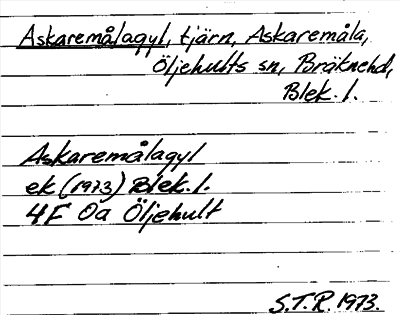 Askaremålagyl, tjärn, Askaremåla,
Öljehults sn, Bräknehd,
Blek. l.
Askaremålagyl
ek (1973) Blek. l.
4F 0a Öljehult
S.T.R. 1973.